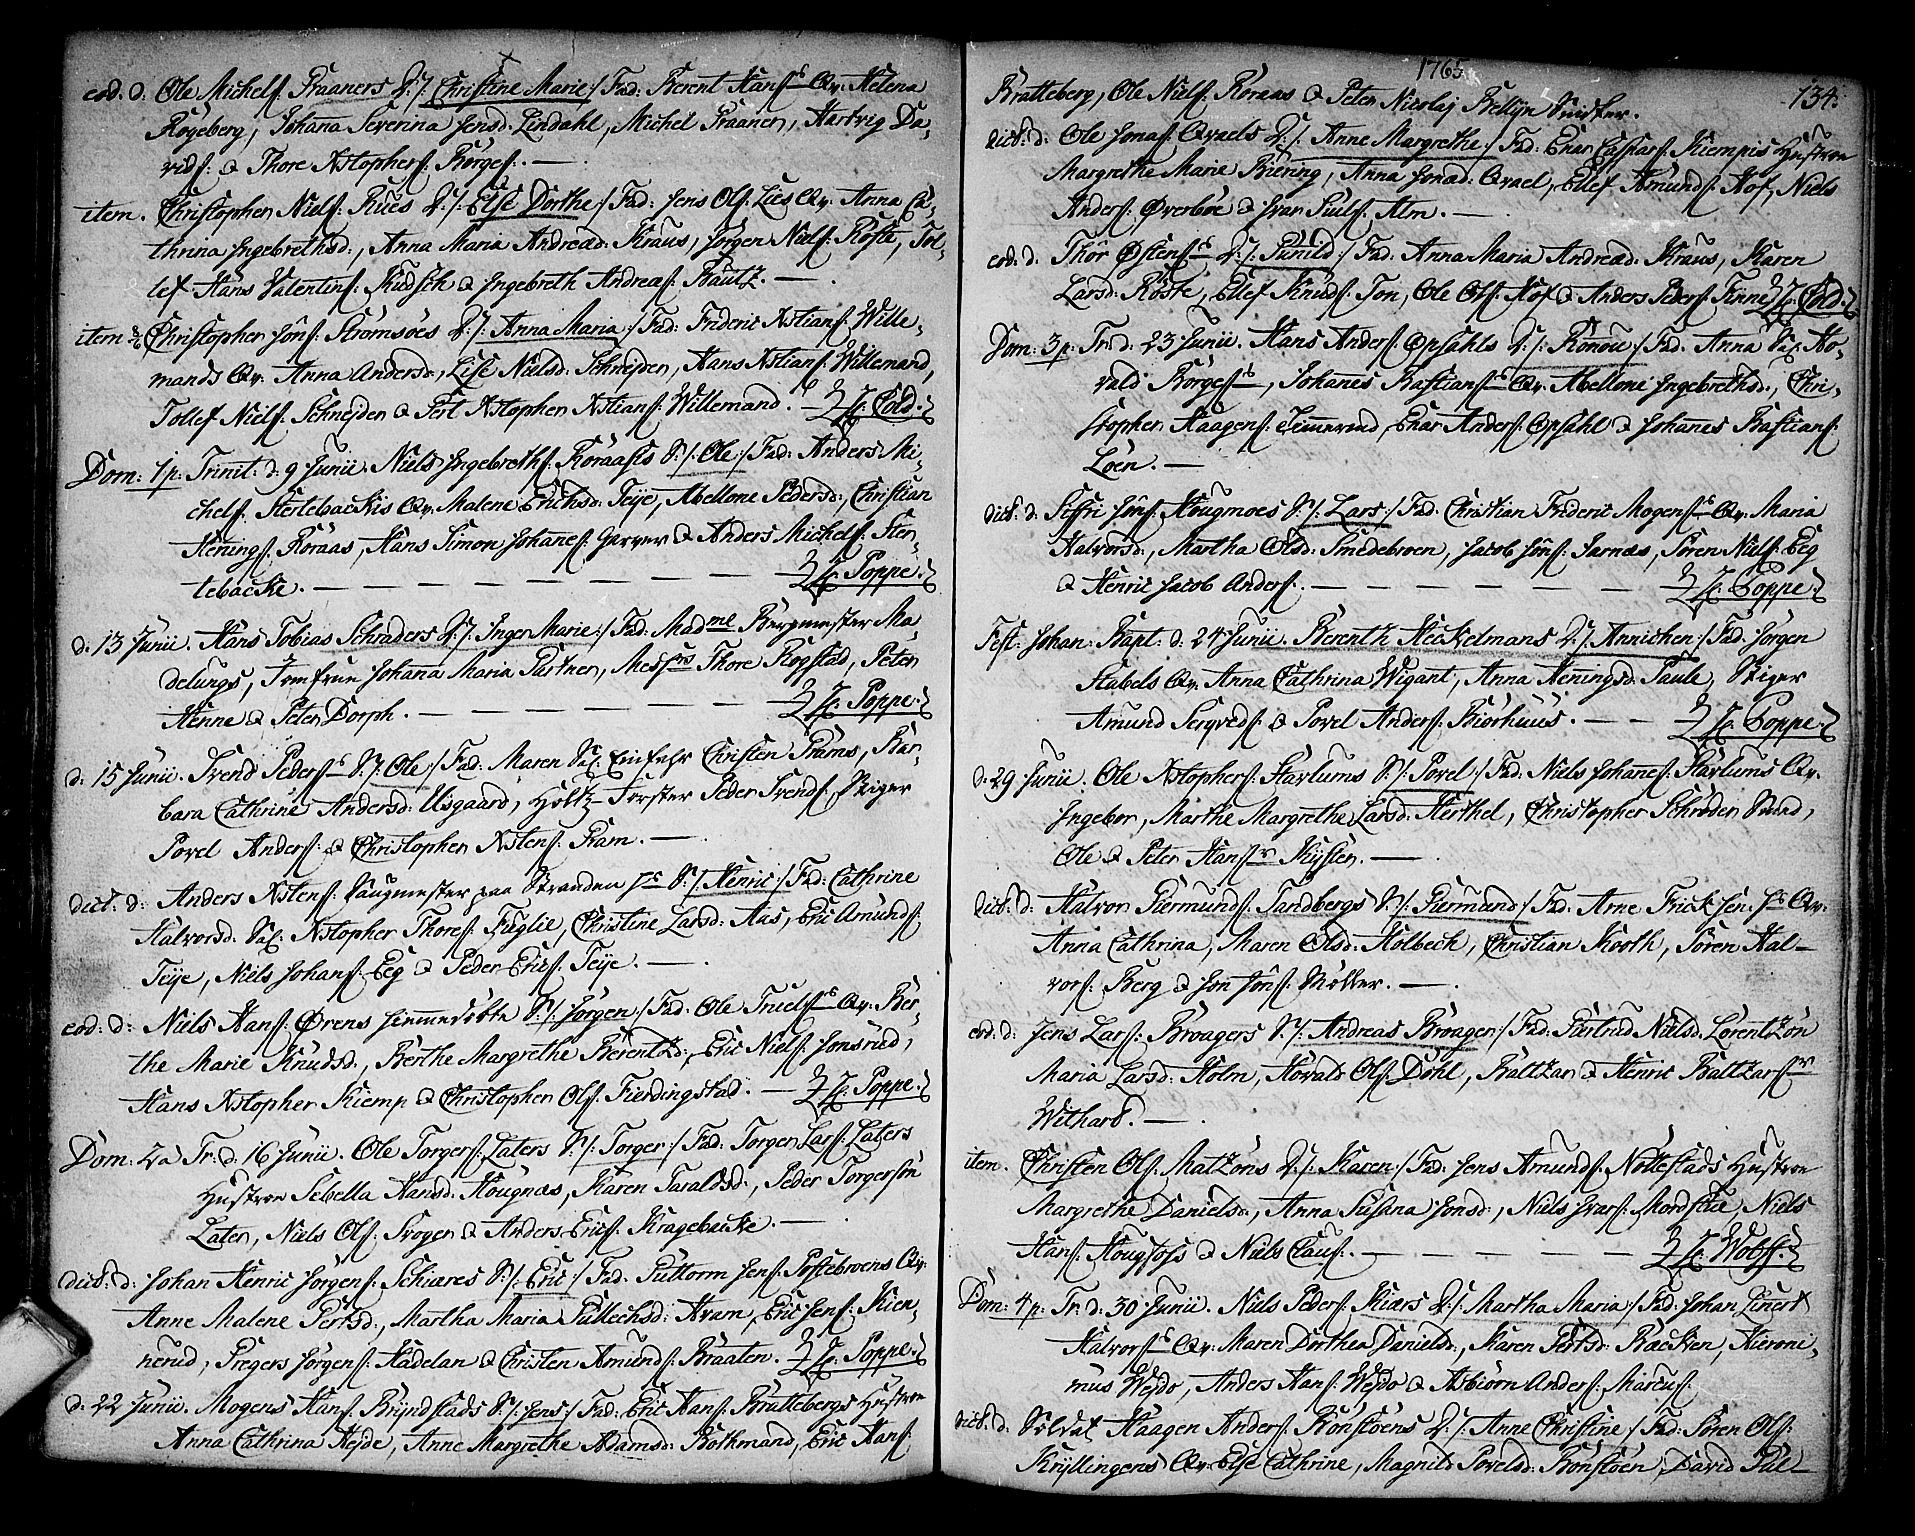 eod: d: Ole Michels: Praaners D:/: Christine Marie:/ Fad: Berent Hans:s Qv: Helena
Rögeberg, Johana Severina Jensd: Lindahl, Michel Praaner, Hartvig Da-
vids: & Thore Xstophers: Börges: —
item. Christopher Niels: Rues D:/: Else Dorthe:/ Fad: Jens Ols: Lies Qv: Anna Ca-
thrina Ingebrethsd:, Anna Maria Andreæd: Kraus, Jörgen Niels: Röste, Tol-
lef Hans Valentins: Kudsch & Ingebreth Andreæs: Bautz. —
item Christopher Jöns: Strömsöes D:/: Anna Maria:/ Fad: Frideric Xstians: Wille-
mands Qv: Anna Andersd:, Lise Nielsd: Schnejder, Hans Xstians: Willemand,
Tollef Niels: Schnejder & Pert Xstopher Xstians: Willemand. — Cold.
Dom: 1 p: Trinit: d: 9 Junii. Niels Ingebreths: Koraasis S:/: Ole:/ Fad: Anders Mi-
chels: Stertebackis Qv: Malene Erichsd: Teije, Abellone Pedersd:, Christian
Henings: Koraas, Hans Simon Johanes: Garver & Anders Michels: Ster-
tebacke. — — — — — — — Poppe.
d: 13 Junii. Hans Tobias Schraders D:/: Inger Marie:/ Fad: Madme Bergmester Ma-
delungs, Jomfrue Johana Maria Partner, Messrs Thore Rogstad, Peter
Henne & Peter Dorph. — — — — — — Poppe.
d: 15 Junii. Svend Peders:s S:/: Ole:/ Fad: Maren Sal: Einfehr Christen Prams, Bar-
bara Cathrine Andersd: Uisgaard, Holtz-Forster Peder Svends: Stiger
Povel Anders: & Christopher Xstens: Pram. —
dict: d: Anders Xstens: Laugmester paa Stranden hs S:/: Henric:/ Fad: Cathrine
Halvorsd: Sal: Xstopher Thores: Fuglie, Christine Larsd: Aas, Eric Amunds:
Teije, Niels Johans: Eeg & Peder Erics: Teije. —
eod: d: Niels Hans: Ørens Hiemmedöbte S:/: Jörgen:/ Fad: Ole Truels:s Qv: Ber-
the Marie Knudsd:, Berthe Margrethe Berentzd:, Eric Niels: Jonsrud,
Hans Xstopher Kiemp & Christopher Ols: Fierdingstad. — Poppe.
Dom: 2a Tr: d: 16 Junii. Ole Torgers: Laters S:/: Torger:/ Fad: Torger Lars: Laters
Hustroe Sebella Hansd: Hougnæs, Karen Taraldsd:, Peder Torgersön
Later, Niels Ols: Svoger & Anders Erics: Kragebacke. —
dict: d: Johan Henric Jörgens: Schiæres S:/: Eric:/ Fad: Guttorm Jens: Sostebroens Qv:
Anne Malene Pertsd:, Martha Maria Gullechsd: Hvam, Eric Jens: Kien-
nerud, Gregers Jörgens: Hadelan & Christen Amunds: Braaten. Poppe.
d: 22 Junii. Mogens Hans: Bryndstads S:/: Jens:/ Fad: Eric Hans: Brattebergs Hustroe
Anna Cathrina Hejde, Anne Margrethe Adamsd: Bothmand, Eric Hans:
1763
134.
Bratteberg, Ole Niels: Koraas & Peter Nicolaj Bellijn Snidker.
dict: d: Ole Jonas: Qvaels D:/: Anne Margrethe:/ Fad: Enar Caspars: Kiempis Hustroe
Margrethe Marie Biering, Anna Jonæd: Qvael, Ellef Amunds: Hof, Niels
Anders: Øverböe & Ivar Guls: Alm. —
eod: d: Thör Østens:s D:/: Gunild:/ Fad: Anna Maria Andreæd: Kraus, Karen
Larsd: Röste, Ellef Knuds: Ton, Ole Ols: Hof & Anders Peders: Finne. Cold.
Dom: 3 p: Tr: d: 23 Junii. Hans Anders: Opsahls D:/: Ronou:/ Fad: Anna Sal: Ho-
vald Börges:s, Johanes Bastians:s Qv: Abellone Ingebrethsd:, Chri-
stopher Haagens: Temmerud, Enar Anders: Opsahl & Johanes Bastians:
Loen. —
dict: d: Siffri Jöns: Hougmoes S:/: Lars:/ Fad: Christian Frideric Mogens:s Qv: Maria
Halvorsd:, Martha Olsd: Smedebroen, Jacob Jöns: Jarnæs, Sören Niels: Eeg
& Henric Jacob Anders: — — — — — Poppe.
Fest: Johan: Bapt: d: 24 Junii. Berentz Heckelmans D:/: Annichen:/ Fad: Jörgen
Stabels Qv: Anna Cathrina Wigant, Anna Heningsd: Paule, Stiger
Amund Serqveds: & Povel Anders: Biörhuus. — — Poppe.
d: 29 Junii. Ole Xstophers: Skarlums S:/: Povel:/ Fad: Niels Johanes: Skarlums Qv:
Ingebor, Marthe Margrethe Larsd: Herthel, Christopher Schröder Svend,
Ole & Peter Hans:r Thijsten. —
dict: d: Halvor Giermunds: Sandbergs S:/: Giermund:/ Fad: Arne Frick sen: hs Qv:
Anna Cathrina, Maren Olsd: Holbech, Christian Kooth, Sören Hal-
vors: Berg & Jon Jöns: Möller. —
eod: d: Jens Lars: Broagers S:/: Andreas Broager:/ Fad: Giertrud Nielsd: Lorentzön
Maria Larsd: Holm, Hovald Ols: Döhl, Baltzar & Henric Baltzars:r
Withard. —
item. Christen Ols: Matzöns D:/: Karen:/ Fad: Jens Amunds: Nöttestads Hustroe
Margrethe Danielsd:, Anna Susana Jonsd:, Niels Ivars: Mordskue, Niels
Hans: Hougfoss & Niels Claus: — — — — Wolff.
Dom: 4 p: Tr: d: 30 Junii. Niels Peders: Kiærs D:/: Martha Maria:/ Fad: Johan Linert
Halvors:s Qv: Maren Dorthea Danielsd:, Karen Pertsd: Backen, Hieroni-
mus Wejdo, Anders Hans: Wejdo & Asbiörn Anders: Marcus:
dict: d: Soldat Haagen Anders: Kongstöens D:/: Anne Christine:/ Fad: Sören Ols:
Kryllingens Qv: Else Cathrine, Magnild Povelsd: Kongstöen, David Pul-